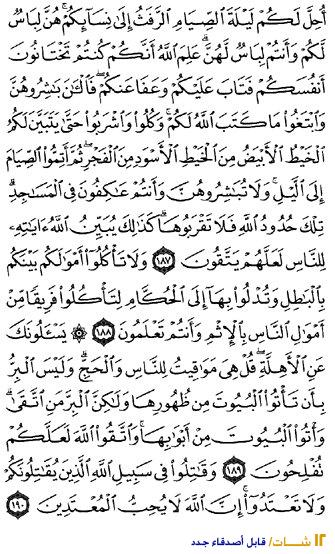 أُحِلَّ لَكُمْ لَيْلَةَ ٱلصِّيَامِ ٱلرَّفَثُ إِلَىٰ نِسَآئِكُمْ ۚ هُنَّ لِبَاسٌ
لَّكُمْ وَأَنتُمْ لِبَاسٌ لَّهُنَّ ۗ عَلِمَ ٱللَّهُ أَنَّكُمْ كُنتُمْ تَخْتَانُونَ
أَنفُسَكُمْ فَتَابَ عَلَيْكُمْ وَعَفَا عَنكُمْ ۖ فَٱلْـَٰٔنَ بَـٰشِرُوهُنَّ
وَٱبْتَغُوا۟ مَا كَتَبَ ٱللَّهُ لَكُمْ ۚ وَكُلُوا۟ وَٱشْرَبُوا۟ حَتَّىٰ يَتَبَيَّنَ لَكُمُ
ٱلْخَيْطُ ٱلْأَبْيَضُ مِنَ ٱلْخَيْطِ ٱلْأَسْوَدِ مِنَ ٱلْفَجْرِ ۖ ثُمَّ أَتِمُّوا۟ ٱلصِّيَامَ
إِلَى ٱلَّيْلِ ۚ وَلَا تُبَـٰشِرُوهُنَّ وَأَنتُمْ عَـٰكِفُونَ فِى ٱلْمَسَـٰجِدِ ۗ
تِلْكَ حُدُودُ ٱللَّهِ فَلَا تَقْرَبُوهَا ۗ كَذَٰلِكَ يُبَيِّنُ ٱللَّهُ ءَايَـٰتِهِۦ
لِلنَّاسِ لَعَلَّهُمْ يَتَّقُونَ ١٨٧ وَلَا تَأْكُلُوٓا۟ أَمْوَٰلَكُم بَيْنَكُم
بِٱلْبَـٰطِلِ وَتُدْلُوا۟ بِهَآ إِلَى ٱلْحُكَّامِ لِتَأْكُلُوا۟ فَرِيقًا مِّنْ
أَمْوَٰلِ ٱلنَّاسِ بِٱلْإِثْمِ وَأَنتُمْ تَعْلَمُونَ ١٨٨ ۞ يَسْـَٔلُونَكَ
عَنِ ٱلْأَهِلَّةِ ۖ قُلْ هِىَ مَوَٰقِيتُ لِلنَّاسِ وَٱلْحَجِّ ۗ وَلَيْسَ ٱلْبِرُّ
بِأَن تَأْتُوا۟ ٱلْبُيُوتَ مِن ظُهُورِهَا وَلَـٰكِنَّ ٱلْبِرَّ مَنِ ٱتَّقَىٰ ۗ
وَأْتُوا۟ ٱلْبُيُوتَ مِنْ أَبْوَٰبِهَا ۚ وَٱتَّقُوا۟ ٱللَّهَ لَعَلَّكُمْ
تُفْلِحُونَ ١٨٩ وَقَـٰتِلُوا۟ فِى سَبِيلِ ٱللَّهِ ٱلَّذِينَ يُقَـٰتِلُونَكُمْ
وَلَا تَعْتَدُوٓا۟ ۚ إِنَّ ٱللَّهَ لَا يُحِبُّ ٱلْمُعْتَدِينَ ١٩٠
١٢ شـــات/ قابل أصدقاء جدد